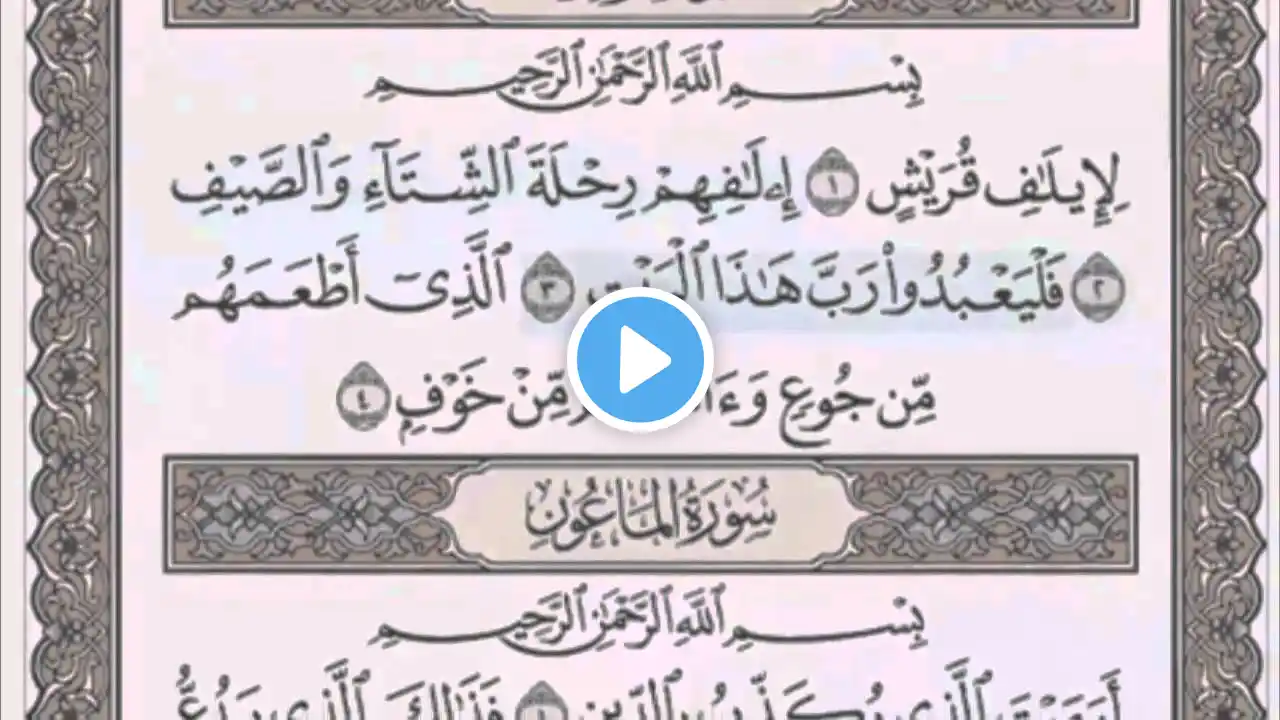 بِسْمِ ٱللَّهِ ٱلرَّحْمَٰنِ ٱلرَّحِيمِ
لِإِيلَٰفِ قُرَيْشٍ ١ إِۦلَٰفِهِمْ رِحْلَةَ ٱلشِّتَآءِ وَٱلصَّيْفِ
٢ فَلْيَعْبُدُوا۟ رَبَّ هَٰذَا ٱلْبَيْتِ ٣ ٱلَّذِىٓ أَطْعَمَهُم
مِّن جُوعٍ مِّنْ خَوْفٍۭ ٤
سُورَةُ المَاعُونِ
بِسْمِ ٱللَّهِ ٱلرَّحْمَٰنِ ٱلرَّحِيمِ
أَرَءَيْتَ ٱلَّذِى يُكَذِّبُ بِٱلدِّينِ ١ فَذَٰلِكَ ٱلَّذِى يَدُعُّ